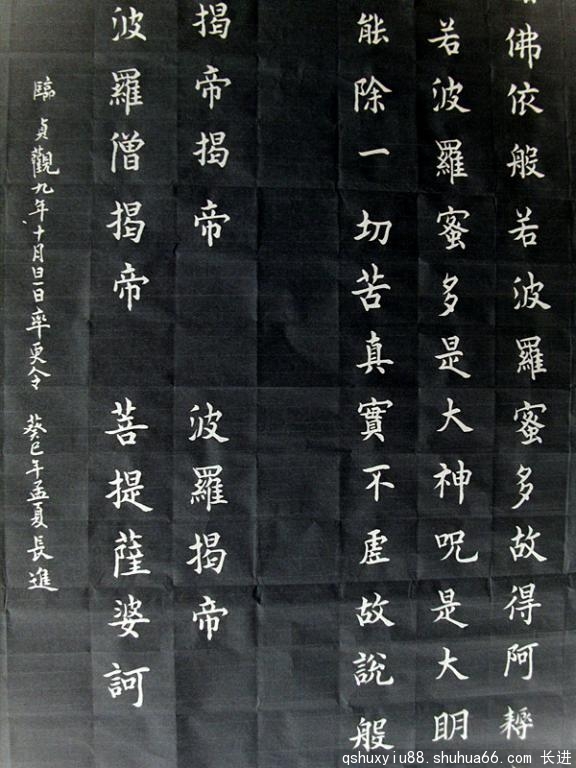 佛依般若波羅蜜多故得阿耨
若波羅蜜多是大神呪是大明
能除一切苦真實不虛故說般
揭帝揭帝 波羅揭帝
波羅僧揭帝 菩提薩婆訶
臨貞觀九年十月旦日率更令 癸巳年孟夏長進
qshuxyiu88.shuhua66.com 长进